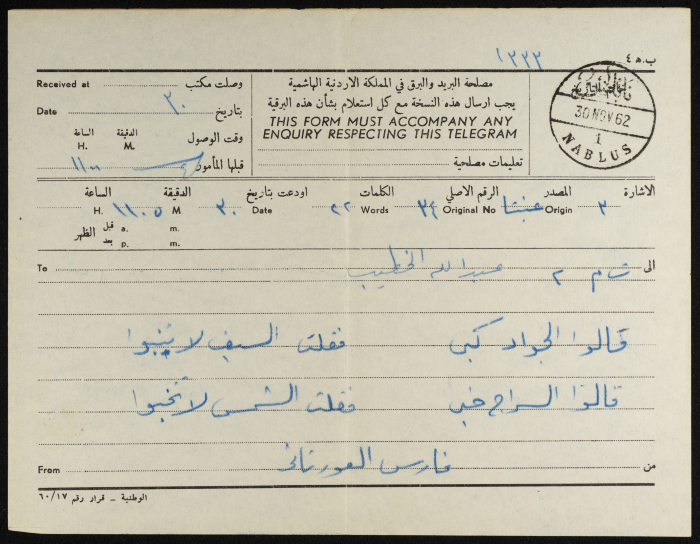 ب. ه ٤
١٣٣٣
مصلحة البريد والبرق في المملكة الاردنية الهاشمية
يجب ارسال هذه النسخة مع كل استعلام بشأن هذه البرقية
THIS FORM MUST ACCOMPANY ANY
ENQUIRY RESPECTING THIS TELEGRAM
تعليمات مصلحية
Received at وصلت مكتب
Date ٣٠ بتاريخ
الساعة الدقيقة وقت الوصول
H. M.
١١٠٠ قبلها المأمور
نابلس
30 NOV 62
1
NABLUS
الاشارة المصدر الرقم الاصلي الكلمات اودعت بتاريخ الدقيقة الساعة
٣ Origin عنبتا Original No ٣٤ Words ٢٢ Date ٣٠ M ١١٠٥ H.
قبل a. m. الظهر
بعد p. m.
To الى ت م ٢ عبدالله الخطيب
قالوا الجواد كبى فقلت السيف لا ينبوا
قالوا السراج خبى فقلت الشمس لا تخبوا
From من فارس العورتاني
الوطنية - قرار رقم ٦٠/١٧